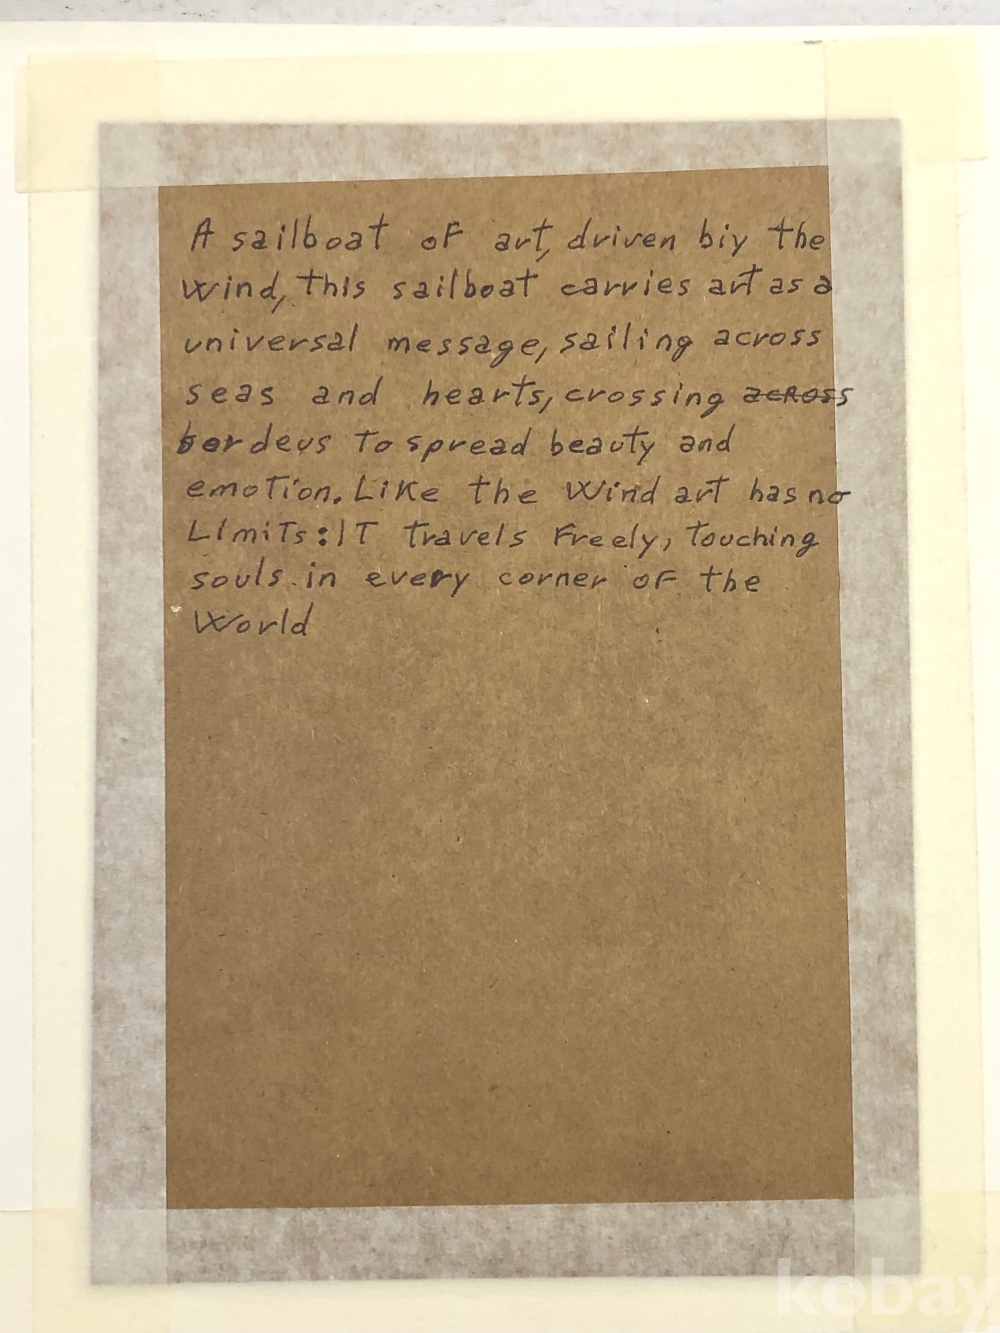 A sailboat oF art, driven biy the
wind, this sailboat carries art as a
universal message, sailing across
seas and hearts, crossing across
bordeus To spread beauty and
emotion. Like the Wind art has no
LimiTs: IT Travels Freely, Touching
souls in every corner oF the
World
kebay